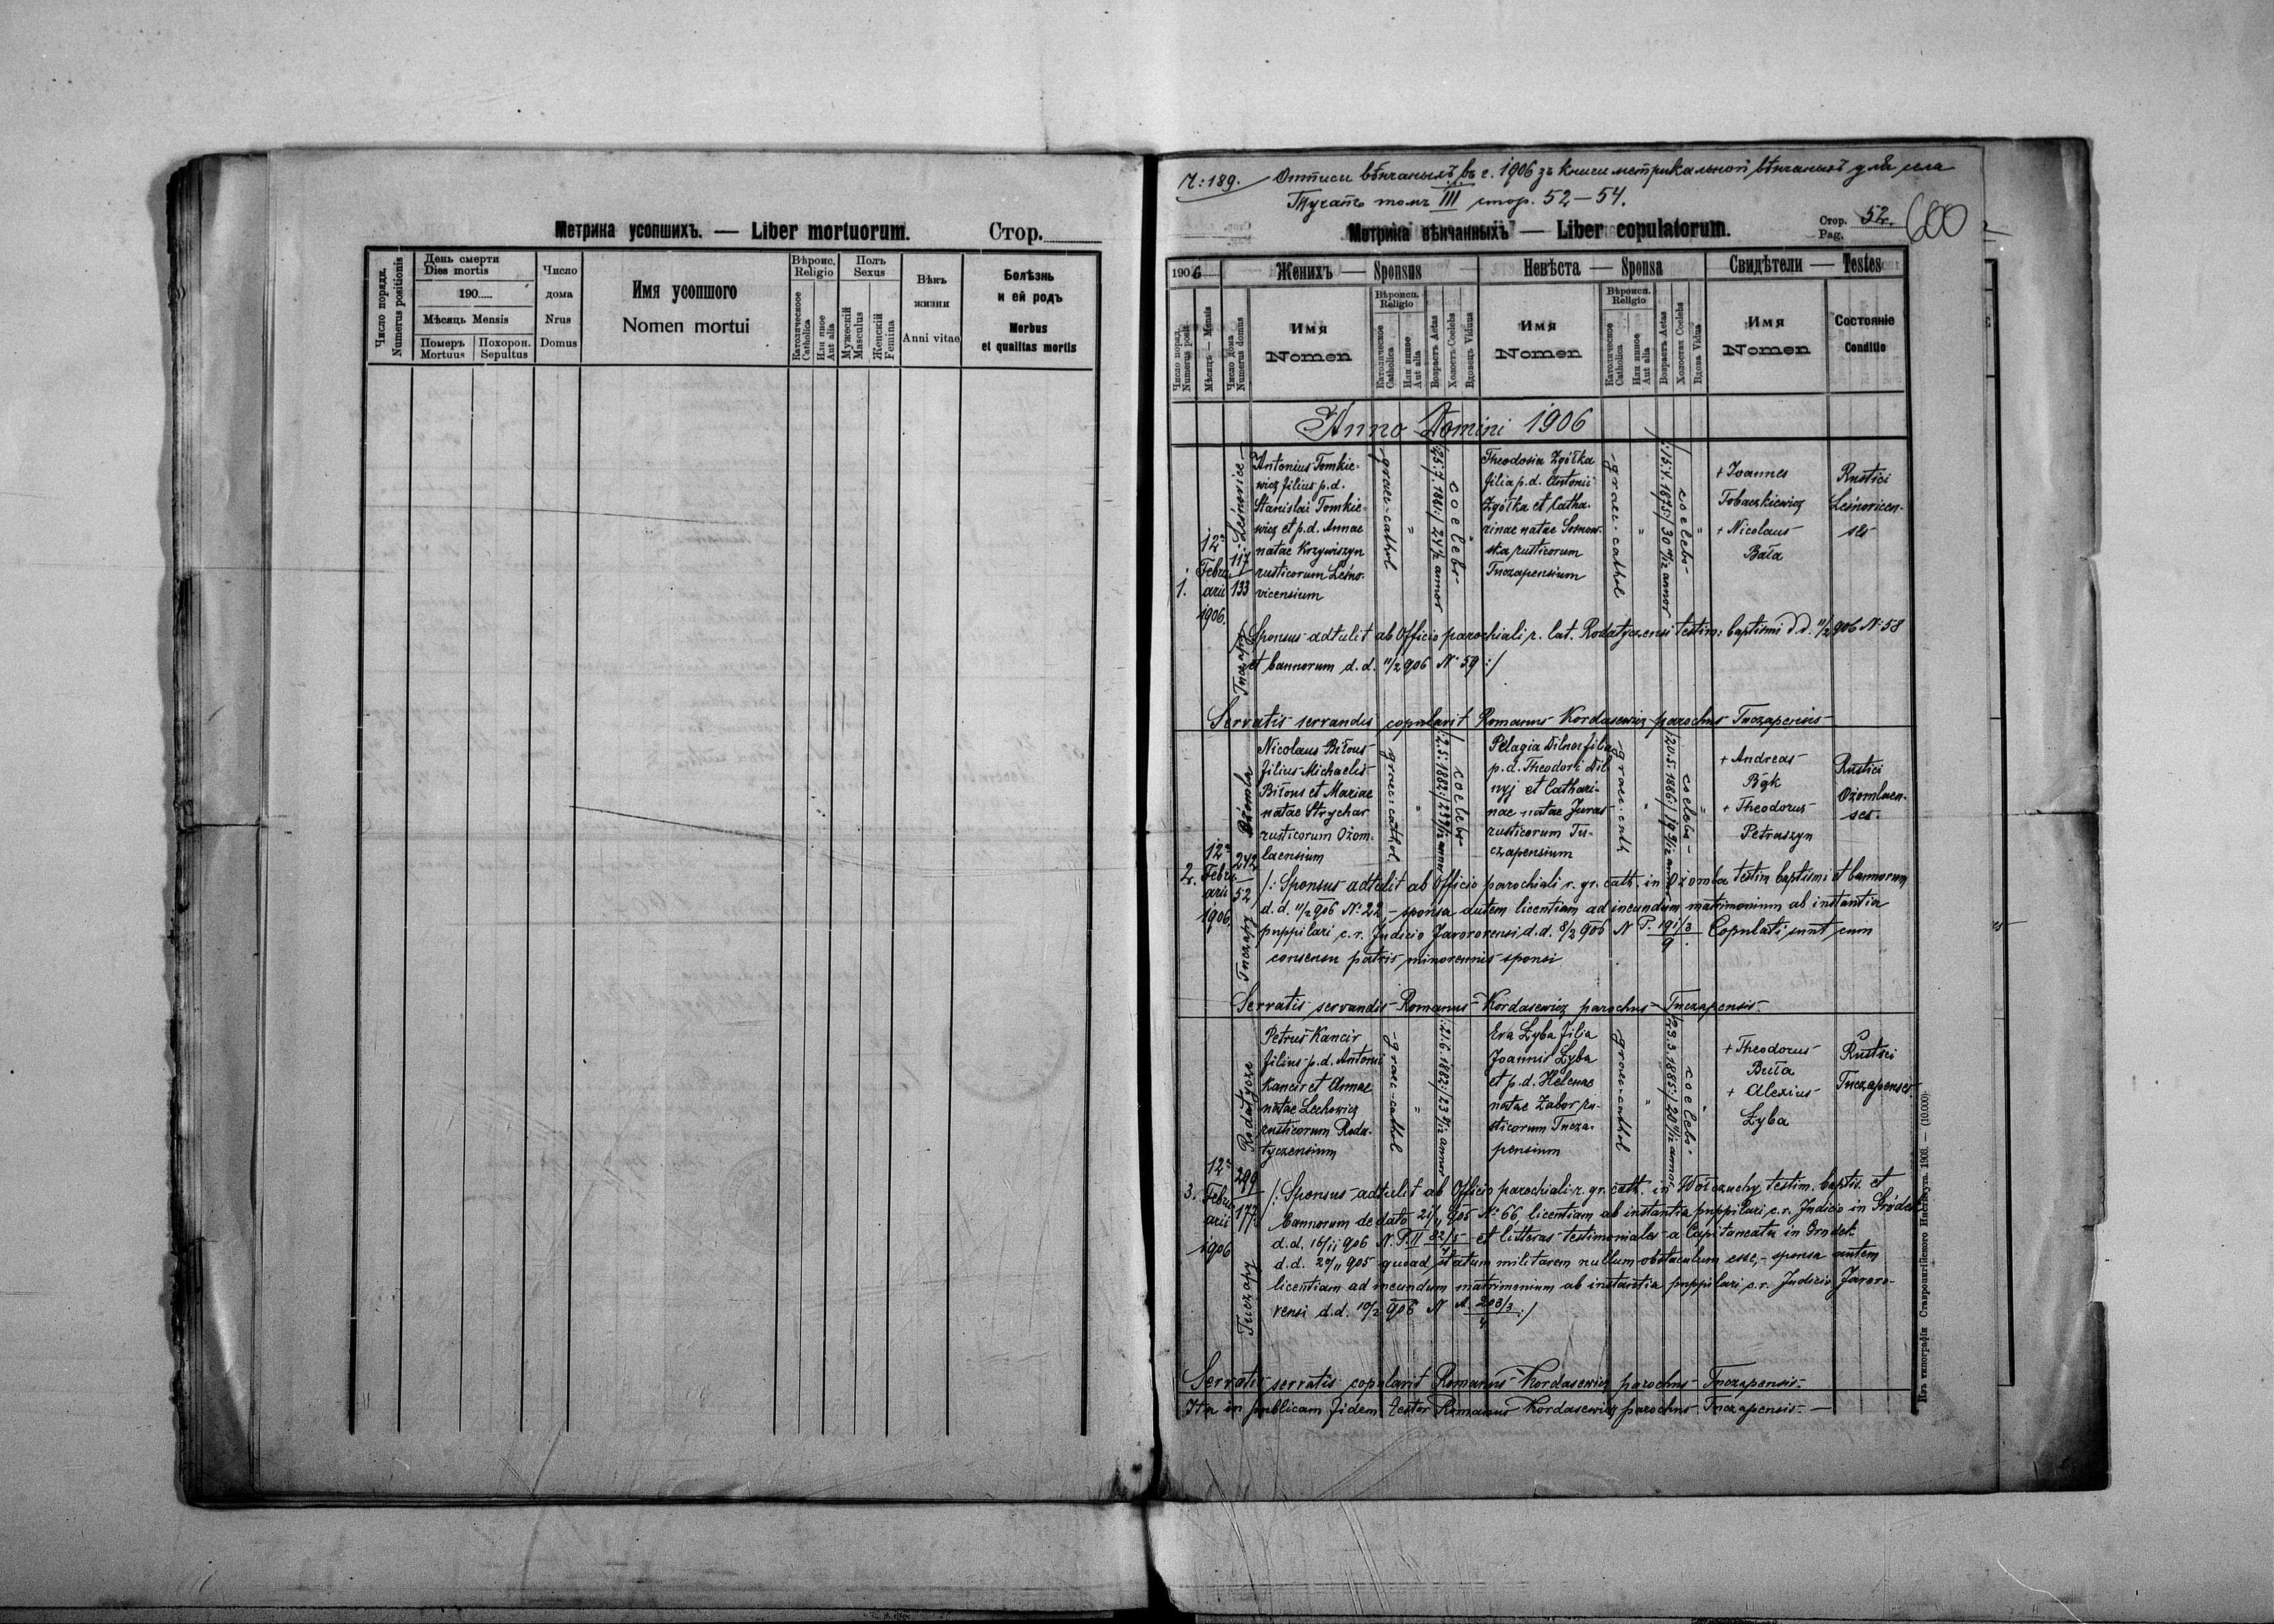 Метрика усопшихъ. — Liber mortuorum. Стор.
Число поряд. Numerus positionis
День смерти
Dies mortis
190
Мѣсяць Mensis
Померъ Mortuus
Похорон. Sepultus
Число дома Nrus Domus
Имя усопшого
Nomen mortui
Вѣроис. Religio
Католическоое Catholica
Или иное Aut alia
Полъ Sexus
Мужескій Masculus
Женскій Femina
Вѣкъ жизни Anni vitae
Болѣзнь и ей родъ
Morbus et qualitas mortis
Ч: 189. Отписи вѣнчаныхъ въ г. 1906 зъ книги метрикальной вѣнчаныхъ для села
Тучапъ томъ III стор. 52–54.
Метрика вѣнчанныхъ — Liber copulatorum.
Стор. Pag. 52.
600
1906
Женихъ — Sponsus
Невѣста — Sponsa
Свидѣтели — Testes
Число поряд. Numerus posit.
Мѣсяць — Mensis
Число дома Numerus domus
Имя
Nomen
Вѣроисп. Religio
Католическое Catholica
Или иное Aut alia
Возрастъ Aetas
Холостъ Coelebs
Вдовецъ Viduus
Имя
Nomen
Вѣроисп. Religio
Католическое Catholica
Или иное Aut alia
Возрастъ Aetas
Холостая Coelebs
Вдова Vidua
Имя
Nomen
Состояніе
Conditio
Anno Domini 1906
1.
12ª
Februarii
1906.
Leśnovice
117
133
Tuczapy
Antonius Tomkie-
wicz filius p.d.
Stanislai Tomkie-
wicz et p.d. Annae
natae Krzywiszyn
rusticorum Leśno-
vicensium
graec-cathol
coelebs
Theodosia Zgółka
filia p.d. Antonii
Zgółka et Catha-
rinae natae Sosnow-
ska rusticorum
Tuczapensium
graec-cathol
coelebs
+ Joannes
Tobaczkiewicz
+ Nicolaus
Bała
Rustici
Leśnovicen-
ses
/: Sponsus adtulit ab Officio parochiali r. lat. Rodatyczensi testim: baptismi d.d. 11/2 906 N: 58
et bannorum d.d. 11/2 906 N: 59 :/
Servatis servandis copulavit Romanus Kordasewicz parochus Tuczapensis
2.
12ª
Februarii
1906.
Ożomla
242
52
Tuczapy
Nicolaus Biłous
filius Michaelis
Biłous et Mariae
natae Strychar
rusticorum Ożom-
laensium
graec-cathol
/:2.5.1882:/ 23 9/12 annor
coelebs
Pelagia Dilnor filia
p.d. Theodori Dil
nyj et Cathari-
nae natae Juras
rusticorum Tu-
czapensium
graec-cath
/:20.5.1886:/ 19 9/12 annor
coelebs
+ Andreas
Bąk
+ Theodorus
Petraszyn
Rustici
Ożomlaen-
ses.
/: Sponsus adtulit ab Officio parochiali r. gr. cath. in Ożomla testim baptismi et bannorum
d.d. 11/2 906 N: 22 – sponsa autem licentiam ad ineundum matrimonium ab instantia
puppilari c.r. Judicio Javorovensi d.d. 8/2 906 N P. 191/3 9. Copulati sunt cum
consensu patris minorennis sponsi
Servatis servandis Romanus Kordasewicz parochus Tuczapensis.
3.
12ª
Februarii
1906
Rodatycze
299
177
Tuczapy
Petrus Kancir
filius p.d. Antonii
Kancir et Annae
natae Lechowicz
rusticorum Roda-
tyczensium
graec-cathol
coelebs
Eva Łyba filia
Joannis Łyba
et p.d. Helenae
natae Zabor ru-
sticorum Tucza-
pensium
graec-cathol
/:23.3.1885:/ 20 11/12 annor
coelebs
+ Theodorus
Buła
+ Alexius
Łyba
Rustici
Tuczapenses.
/: Sponsus adtulit ab Officio parochiali r. gr. cath. in Wołczuchy testim. baptis. et
bannorum de dato 21/11 905 N: 66, licentiam ab instantia puppilari c.r. Judicio in Gródek
d.d. 16/11 906 N. P. II 82/5 4 et litteras testimoniales a Capitaneatu in Grodek
d.d. 20/11 905 quoad statum militarem nullum obstaculum esse, – sponsa autem
licentiam ad ineundum matrimonium ab instantia puppilari c.r. Judicio Javoro-
vensi d.d. 10/2 906 N A. 208/3 4 :/
Servatis servatis copulavit Romanus Kordasewicz parochus Tuczapensis.
Ita in publicam fidem testor Romanus Kordasewicz parochus Tuczapensis. —
Изъ типографіи Ставропигійского Института. 1903. — (10.000)